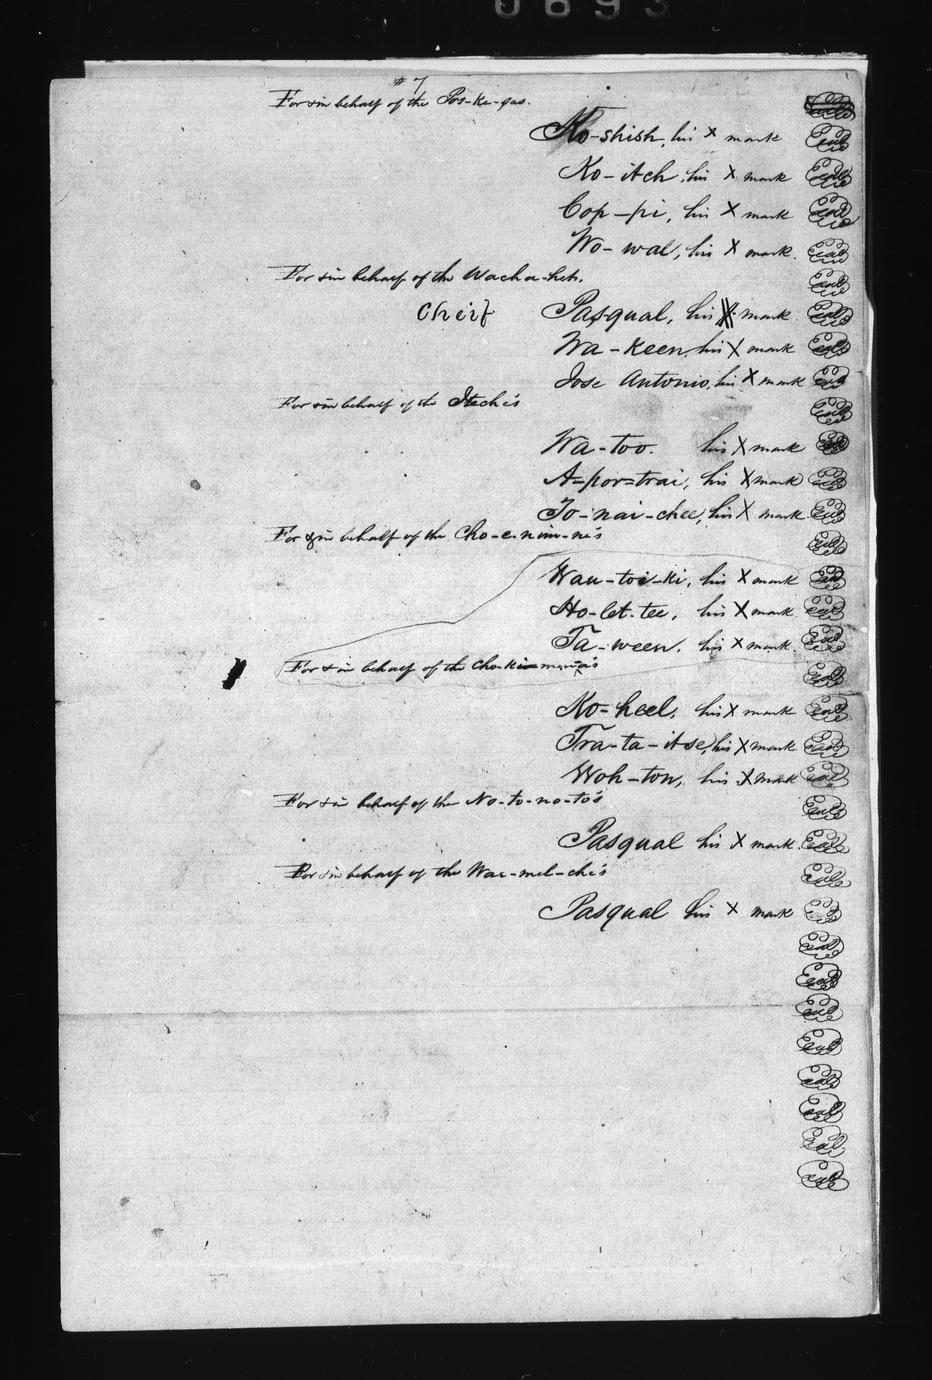 0693
# 7
For & in behalf of the Pos-ke-sas.
Ko-shish, his X mark Seal
Ko-itch, his X mark Seal
Cop-pi, his X mark Seal
Wo-wal, his X mark. Seal
For & in behalf of the Wacha-hets. Seal
Cheif Pasqual, his X mark Seal
Wa-keen, his X mark Seal
Jose Antonio, his X mark Seal
For & in behalf of the Itechees Seal
Wa-too. his X mark Seal
A=por=trai, his X mark Seal
To-nai-chee, his X mark Seal
For & in behalf of the Cho-e-nim-ne's Seal
Wau-toi-ki, his X mark Seal
Ho-let-tee, his X mark Seal
Ta-ween. his X mark. Seal
For & in behalf of the Seal
Ko-heel, his X mark Seal
Tra-ta-itse, his X mark Seal
Woh-ton, his X mark Seal
For & in behalf of the No-to-no-to's Seal
Pasqual his X mark. Seal
For & in behalf of the Wae-mel-che's Seal
Pasqual his X mark Seal
Seal
Seal
Seal
Seal
Seal
Seal
Seal
Seal